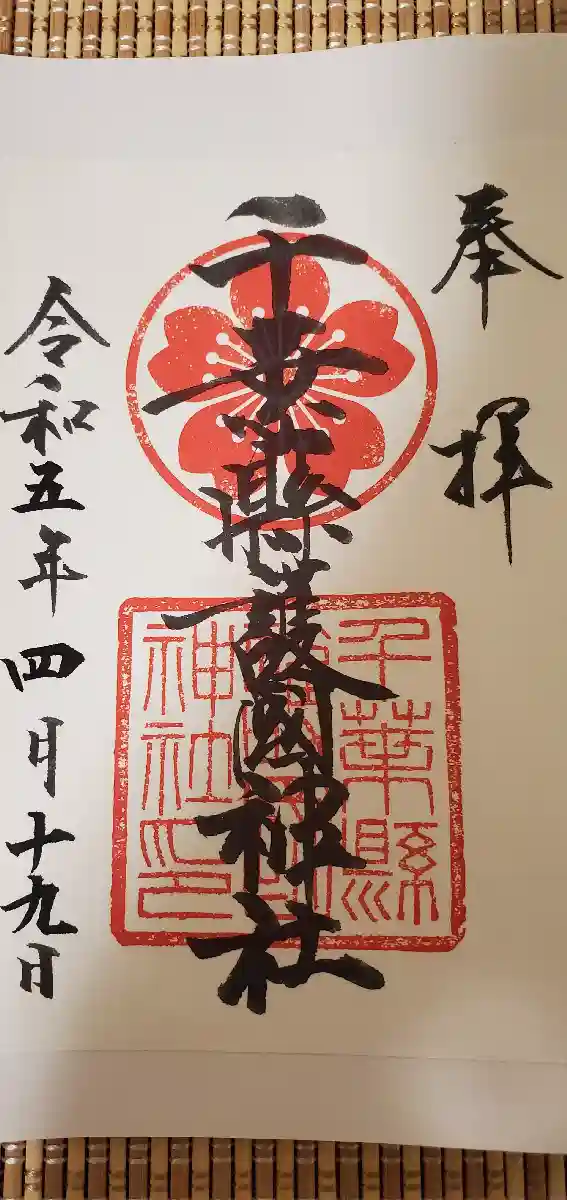 奉拝
千葉縣護國神社
千葉縣
神社印
令和五年四月十九日